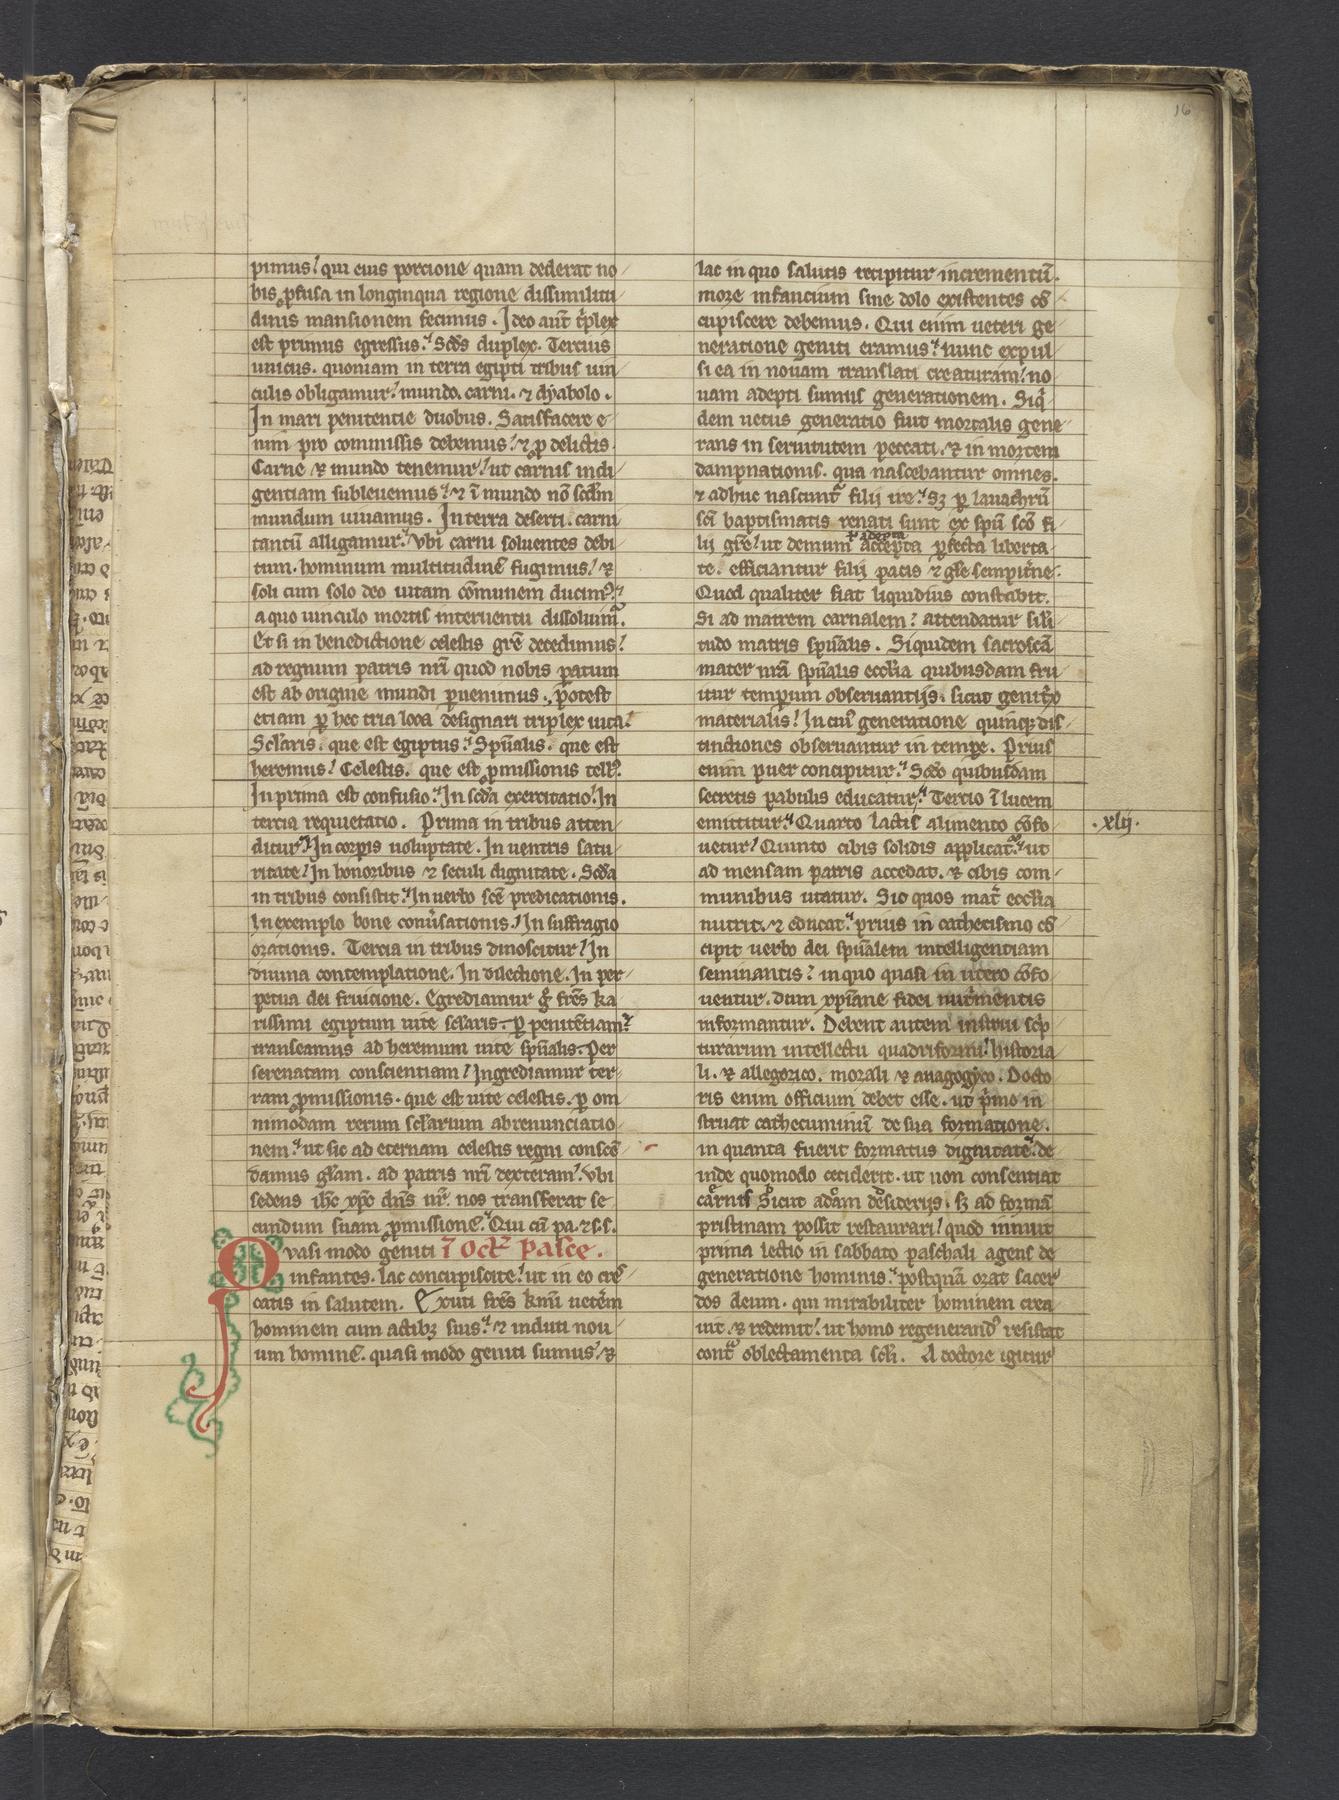 16
pimus! qui eius porcione quam dederat no
bis ꝓfusa in longinqua regione dissimilitu
dinis mansionem fecimus. Ideo aut̄ tⁱplex
est primus egressus. Scđs duplex. Tercius
unicus. quoniam in terra egipti tribus uin
culis obligamur! mundo. carni. ⁊ dyabolo.
In mari penitentie duobus. Satisfacere e
nim pro commissis debemus! ⁊ ꝓ delictis.
Carne ⁊ mundo tenemur! ut carnis indi
gentiam subleuemus! ⁊ ī mundo nō scđm
mundum uiuamus. In terra deserti. carni
tantū alligamur. Vbi carni soluentes debi
tum. hominum multitudinē fugimus! ⁊
soli cum solo deo uitam cōmunem ducimꝰ.
a quo uinculo mortis interuentu dissoluimᷣ.
Et si in benedictione celestis grē decedimus!
ad regnum patris nr̄i quod nobis ꝑatum
est ab origine mundi ꝑuenimus. potest
etiam ꝑ hec tria loca designari triplex uita.
Sclaris. que est egiptus. Spūalis. que est
heremus! Celestis. que est ꝓmissionis tellꝰ.
In prima est confusio. In scđa exercitatio! In
tercia requietatio. Prima in tribus atten
ditur. In corꝑis uoluptate. In uentris satu
ritate! In honoribus ⁊ seculi dignitate. Scđa
in tribus consistit. In uerbo scē predicationis.
In exemplo bone conuſationis! In suffragio
orationis. Tercia in tribus dinoscitur! In
diuina contemplatione. In dilectione. In per
petua dei fruicione. Egrediamur gͦ fr̄es ka
rissimi egiptum uite sclaris. ꝑ penitentiam.
transeamus ad heremum uite spūalis. Per
serenatam conscientiam! Ingrediamur ter
ram ꝓmissionis. que est uite celestis. ꝑ om
nimodam rerum sclarium abrenunciatio
nem. ut sic ad eternam celestis regni conscē
damus glam. ad patris nr̄i dexteram. Vbi
sedens ihc̄ xpc̄ dn̄s nr̄. nos transferat se
cundum suam ꝓmissionē. Qui cū pa. ⁊ s. s.
Quasi modo geniti ī Oct̄ Pasce.
infantes. lac concupiscite! ut in eo cres
catis in salutem. Exuti fr̄es kmi ueterem
hominem cum actibꝫ suis. ⁊ induti nou
um hominē. quasi modo geniti sumus! ⁊
lac in quo salutis recipitur incrementū.
more infancium sine dolo existentes cō
cupiscere debemus. Qui enim ueteri ge
neratione geniti eramus. nunc expul
si ea in nouam translati creaturam! no
uam adepti sumus generationem. Siqⁱ
dem uetus generatio fuit mortalis gene
rans in seruitutem peccati. ⁊ in mortem
dampnationis. qua nascebantur omnes.
⁊ adhuc nascuntᷣ filij ire. Sꝫ ꝑ lauachrū
sc̄i baptismatis renati sunt ex spū sc̄o fi
lij grē! ut demum accepta ꝑfecta liberta
te. efficiantur filij pacis ⁊ gle sempitne.
Quod qualiter fiat liquidius constabit.
Si ad matrem carnalem! attendatur sili
tudo matris spūalis. Siquidem sacroscā
mater nr̄a spūalis ecclia quibusdam fru
itur temporum obseruantijs. sicut genitⁱx
materialis! In cuiꝰ generatione quinqꝫ dis
tinctiones obseruantur in tempe. Prius
enim puer concipitur. Scđo quibusdam
secretis pabulis educatur. Tercio ī lucem
emittitur. Quarto lactis alimento cōfo
uetur! Quinto cibis solidis applicatᷣ. ut
ad mensam patris accedat. ⁊ cibis com
munibus utatur. Sic quos mat̄ ecclia
nutrit. ⁊ educat. prius in cathecismo cō
cipit uerbo dei spūalem intelligentiam
seminantis! in quo quasi in utero cōfo
uentur. dum xp̄iane fidei nutⁱmentis
informantur. Debent autem instrui scⁱp
turarum intellectu quadriformi! historia
li. ⁊ allegorico. morali ⁊ anagogyco. Docto
ris enim officium debet esse. ut pⁱmo in
struat cathecuminū de sua formatione.
in quanta fuerit formatus dignitate. de
inde quomodo ceciderit. ut non consentiat
carnis sicut adam desiderijs. sꝫ ad formā
pristinam possit restaurari! quod innuit
prima lectio in sabbato paschali agens de
generatione hominis. postquā orat sacer
dos deum. qui mirabiliter hominem crea
uit. ⁊ redemit! ut homo regenerandꝰ resistat
contᵃ oblectamenta scli. A doctore igitur
.xlij.